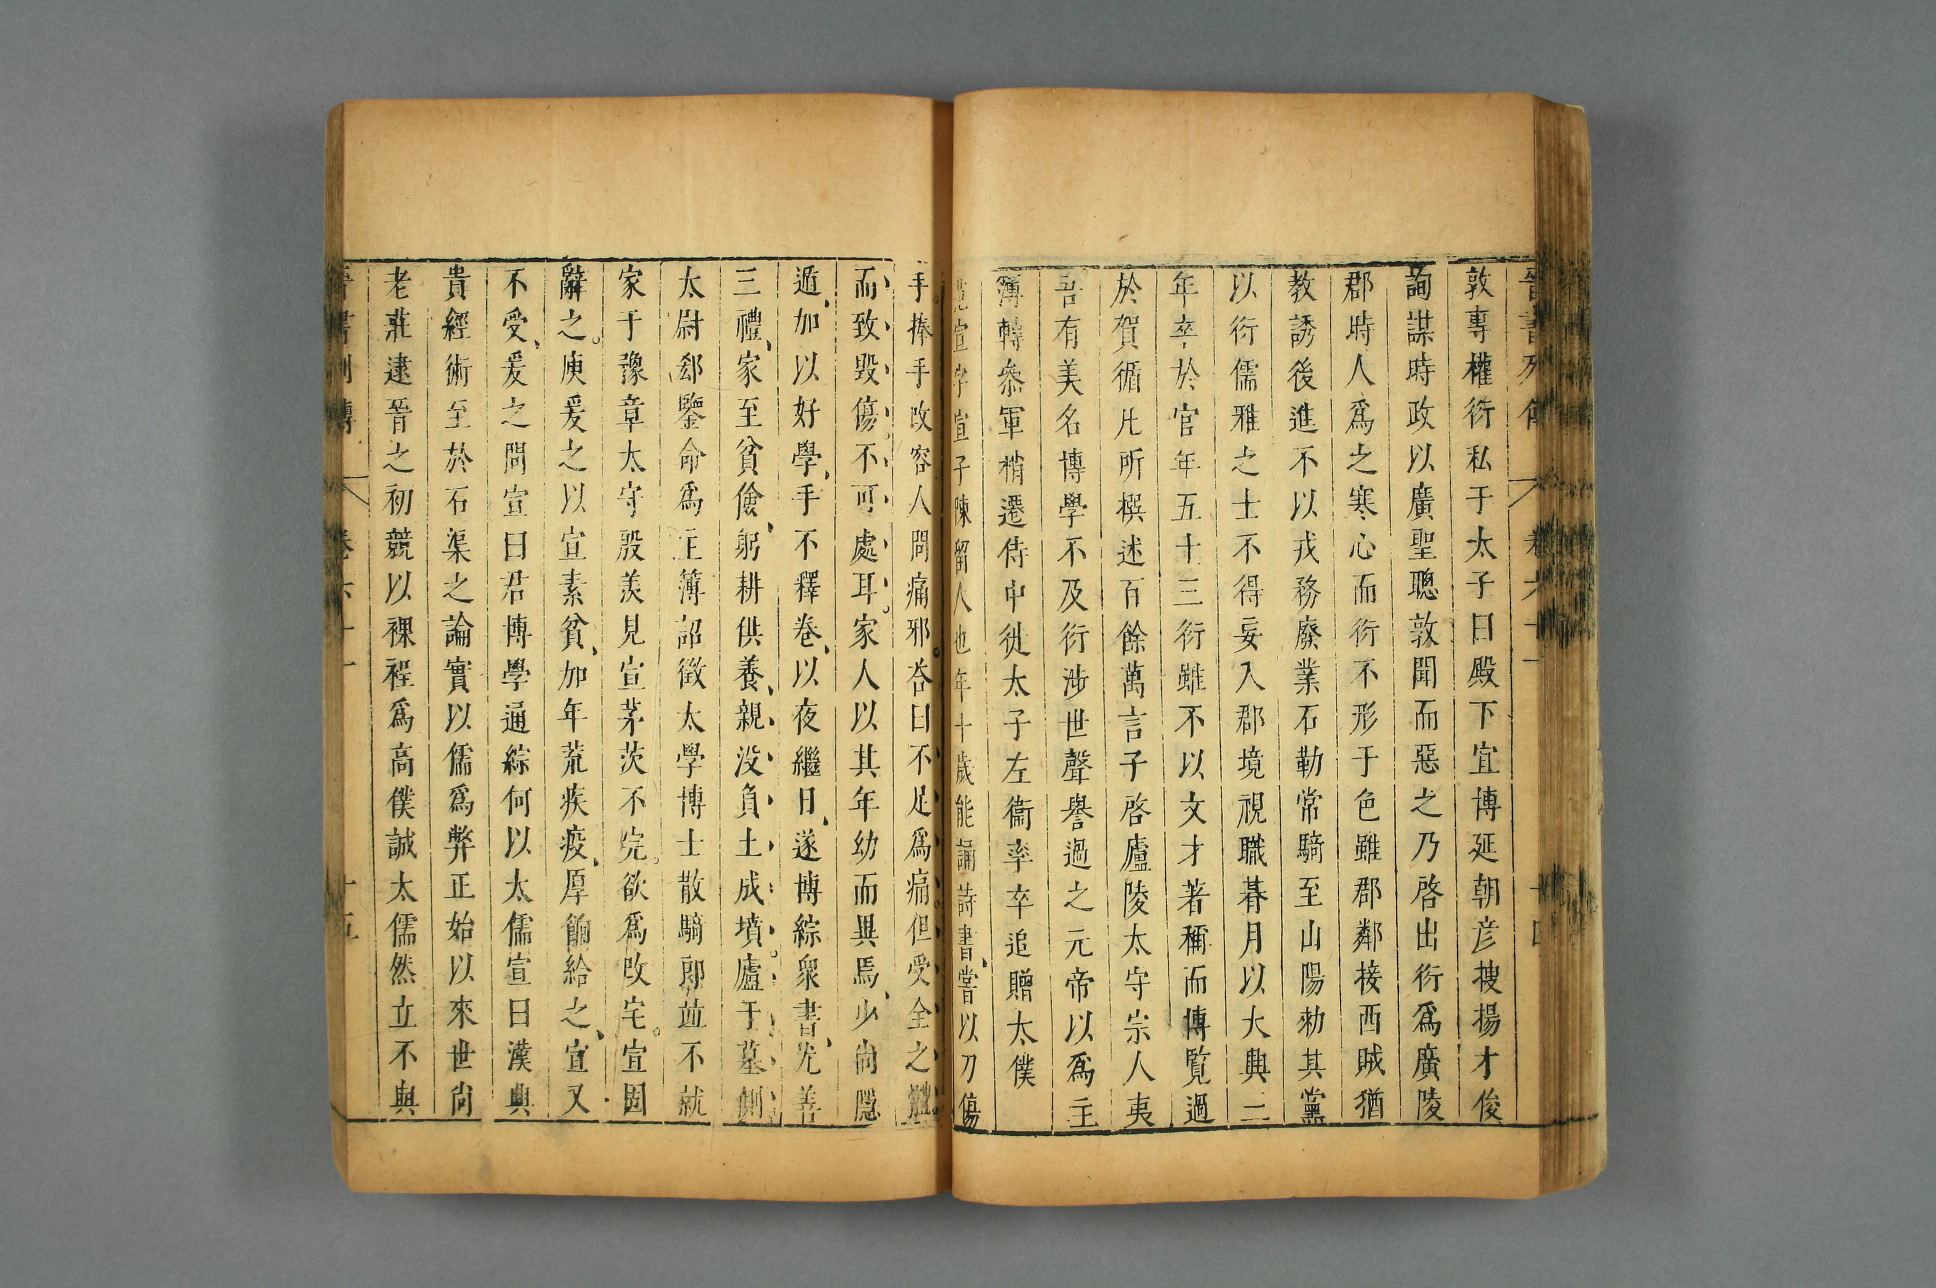 晉書列傳 卷六十一 十四
敦專權衍私于太子曰殿下宜博延朝彥搜揚才俊
詢謀時政以廣聖聰敦聞而惡之乃啓出衍爲廣陵
郡時人爲之寒心而衍不形于色雖郡鄰接西賊猶
教誘後進不以戎務廢業石勒常騎至山陽勑其黨
以衍儒雅之士不得妄入郡境視職朞月以大興二
年卒於官年五十三衍雖不以文才著稱而傳覧過
於賀循凡所撰述百餘萬言子啓廬陵太守宗人夷
吾有美名博學不及衍涉世聲譽過之元帝以爲主
簿轉叅軍稍遷侍中徙太子左衞率卒追贈太僕
范宣字宣子陳留人也年十歲能誦詩書嘗以刀傷
手捧手改容人問痛邪荅曰不足爲痛但受全之體
而致毀傷不可處耳家人以其年幼而異焉少尚隱
遁加以好學手不釋卷以夜繼日遂博綜衆書尤善
三禮家至貧儉躬耕供養親没負土成墳廬于墓側
太尉郄鑒命爲主簿詔徵太學博士散騎郎並不就
家于豫章太守殷羨見宣茅茨不完欲爲改宅宣固
辭之庾爰之以宣素貧加年荒疾疫厚餉給之宣又
不受爰之問宣曰君博學通綜何以太儒宣曰漢興
貴經術至於石渠之論實以儒爲弊正始以來世尚
老莊逮晉之初競以裸裎爲高僕誠太儒然立不與
晉書列傳 卷六十一 十五